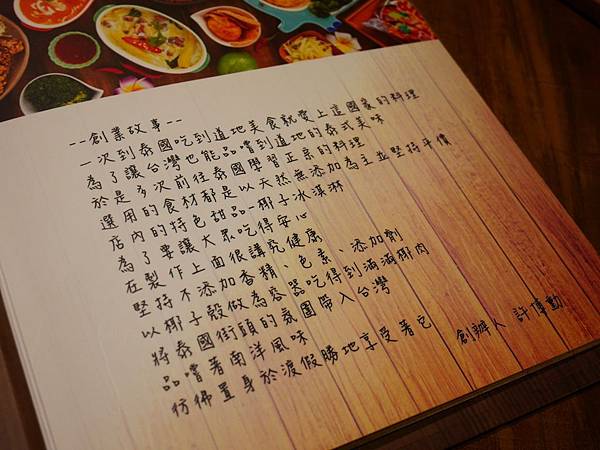 --創業故事--
一次到泰國吃到道地美食就愛上這國家的料理
為了讓台灣也能品嚐到道地的泰式美味
於是多次前往泰國學習正宗的料理
選用的食材都是以天然無添加為主並堅持平價
店內的特色甜品-椰子冰淇淋
為了要讓大眾吃得安心
在製作上面很講究健康
堅持不添加香精、色素、添加劑
以椰子殼做為容器吃得到滿滿椰肉
將泰國街頭的氛圍帶入台灣
品嚐著南洋風味
彷彿置身於渡假勝地享受著它
創辦人 許博勛